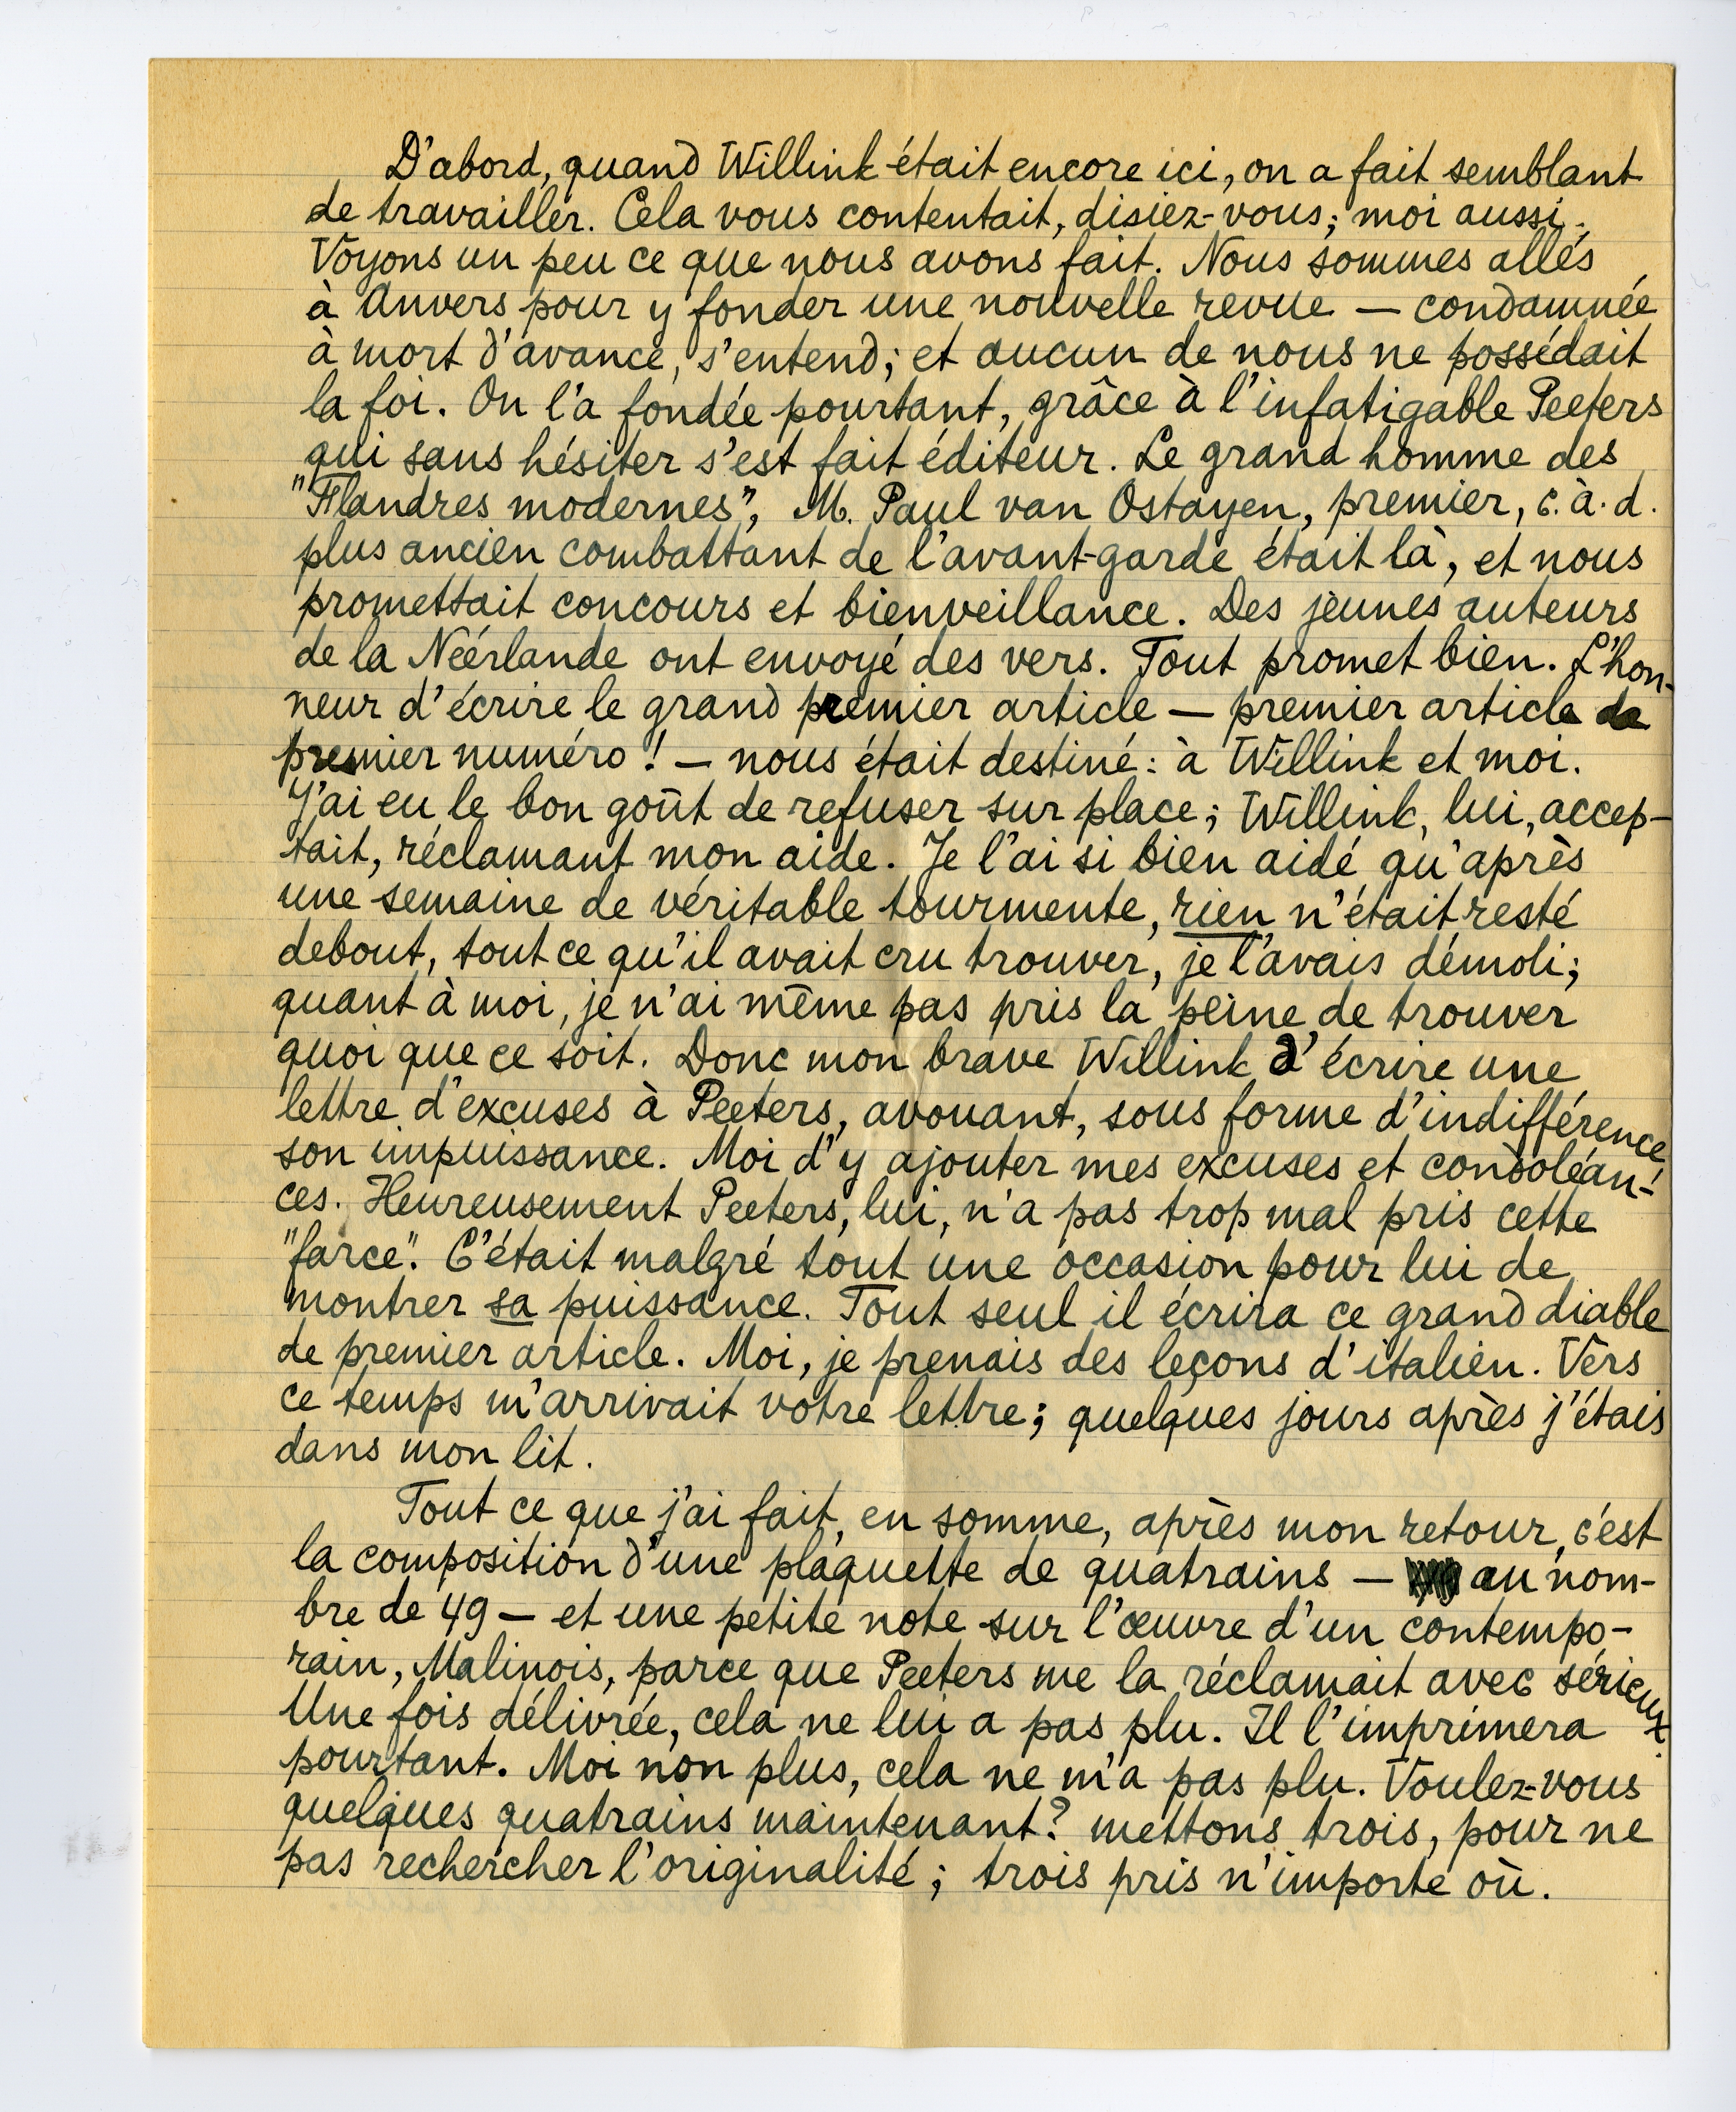 D'abord, quand Willink était encore ici, on a fait semblant
de travailler. Cela vous contentait, disiez-vous; moi aussi.
Voyons un peu ce que nous avons fait. Nous sommes allés
à Anvers pour y fonder une nouvelle revue — condamnée
à mort d'avance, s'entend; et aucun de nous ne possédait
la foi. On l'a fondée pourtant, grâce à l'infatigable Peeters
qui sans hésiter s'est fait éditeur. Le grand homme des
"Flandres modernes", M. Paul van Ostayen, premier, c.à.d.
plus ancien combattant de l'avant-garde était là, et nous
promettait concours et bienveillance. Des jeunes auteurs
de la Néérlande ont envoyé des vers. Tout promet bien. L'hon-
neur d'écrire le grand premier article — premier article de
premier numéro! — nous était destiné: à Willink et moi.
J'ai eu le bon goût de refuser sur place; Willink, lui, accep-
tait, réclamant mon aide. Je l'ai si bien aidé qu'après
une semaine de véritable tourmente, rien n'était resté
debout, tout ce qu'il avait cru trouver, je l'avais démoli;
quant à moi, je n'ai même pas pris la peine de trouver
quoi que ce soit. Donc mon brave Willink d'écrire une
lettre d'excuses à Peeters, avouant, sous forme d'indifférence,
son impuissance. Moi d'y ajouter mes excuses et condoléan-
ces. Heureusement Peeters, lui, n'a pas trop mal pris cette
"farce". C'était malgré tout une occasion pour lui de
montrer sa puissance. Tout seul il écrira ce grand diable
de premier article. Moi, je prenais des leçons d'italien. Vers
ce temps m'arrivait votre lettre; quelques jours après j'étais
dans mon lit.
Tout ce que j'ai fait, en somme, après mon retour, c'est
la composition d'une plaquette de quatrains — au nom-
bre de 49 — et une petite note sur l'œuvre d'un contempo-
rain, Malinois, parce que Peeters me la réclamait avec sérieux.
Une fois délivrée, cela ne lui a pas plu. Il l'imprimera
pourtant. Moi non plus, cela ne m'a pas plu. Voulez-vous
quelques quatrains maintenant? mettons trois, pour ne
pas rechercher l'originalité; trois pris n'importe où.